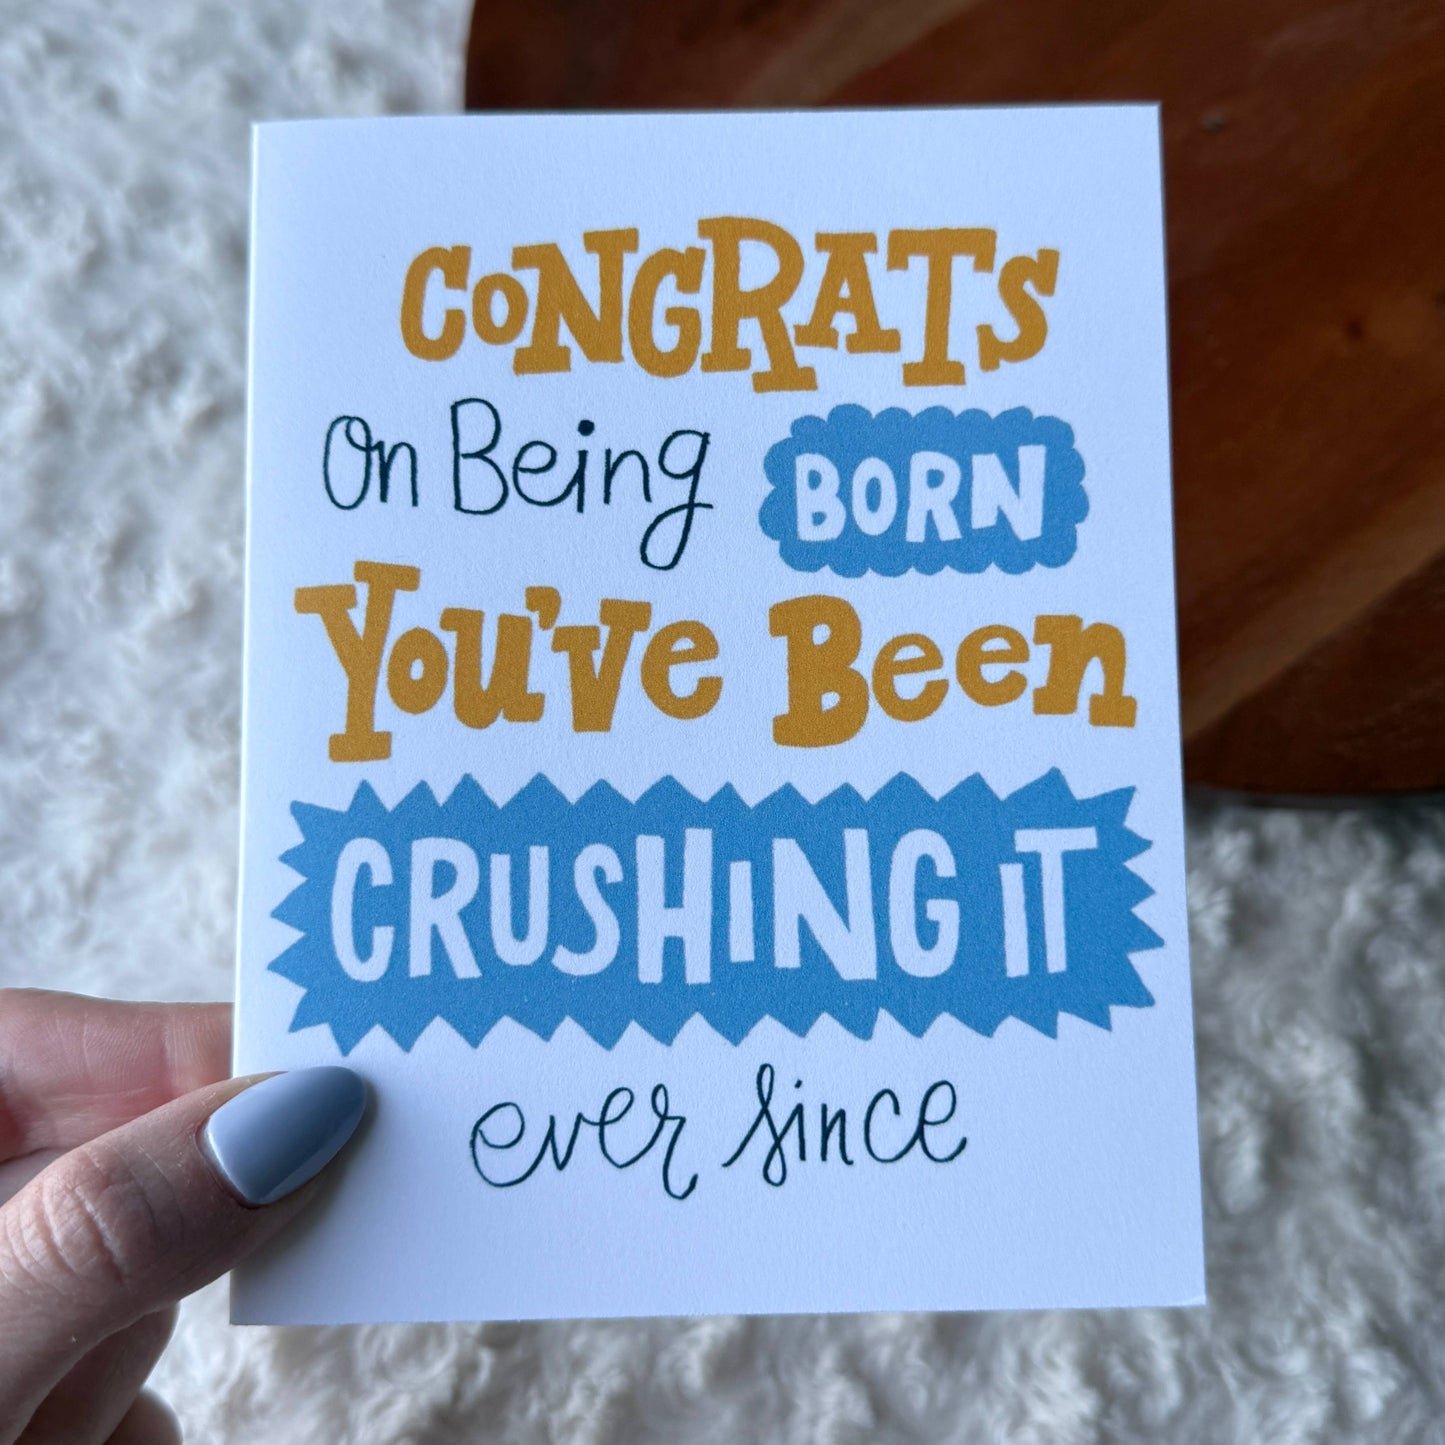 CoNGRATS
On Being BORN
You've Been
CRUSHING IT
ever since